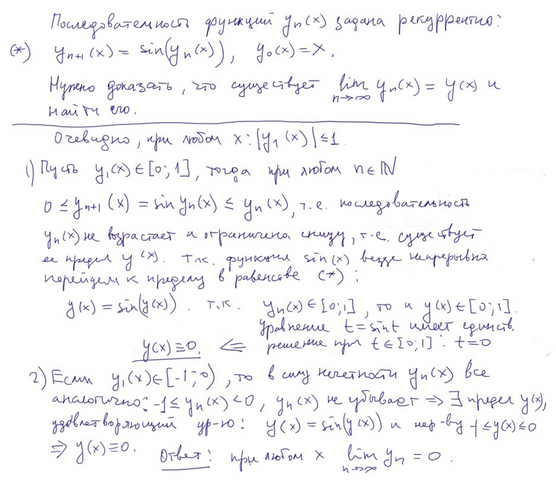 Последовательность функций yₙ(x) задана рекуррентно:
(*) yₙ₊₁(x) = sin(yₙ(x)), y₀(x) = x.
Нужно доказать, что существует lim yₙ(x) = y(x) и
n→∞
найти его.
Очевидно, при любом x: |y₁(x)| ≤ 1.
1) Пусть y₁(x) ∈ [0;1], тогда при любом n ∈ ℕ
0 ≤ yₙ₊₁(x) = sin yₙ(x) ≤ yₙ(x), т.е. последовательность
yₙ(x) не возрастает и ограничена снизу, т.е. существует
ее предел y(x). Т.к. функция sin(x) везде непрерывна
перейдем к пределу в равенстве (*):
y(x) = sin(y(x)). т.к. yₙ(x) ∈ [0;1], то и y(x) ∈ [0;1].
уравнение t = sin t имеет единств.
y(x) ≡ 0. ⇐ решение при t ∈ [0;1]: t = 0
2) Если y₁(x) ∈ [-1;0), то в силу нечетности yₙ(x) все
аналогично: -1 ≤ yₙ(x) < 0, yₙ(x) не убывает ⇒ ∃ предел y(x),
удовлетворяющий ур-ю: y(x) = sin(y(x)) и нер-ву -1 ≤ y(x) ≤ 0
⇒ y(x) ≡ 0. Ответ: при любом x lim yₙ = 0.
n→∞